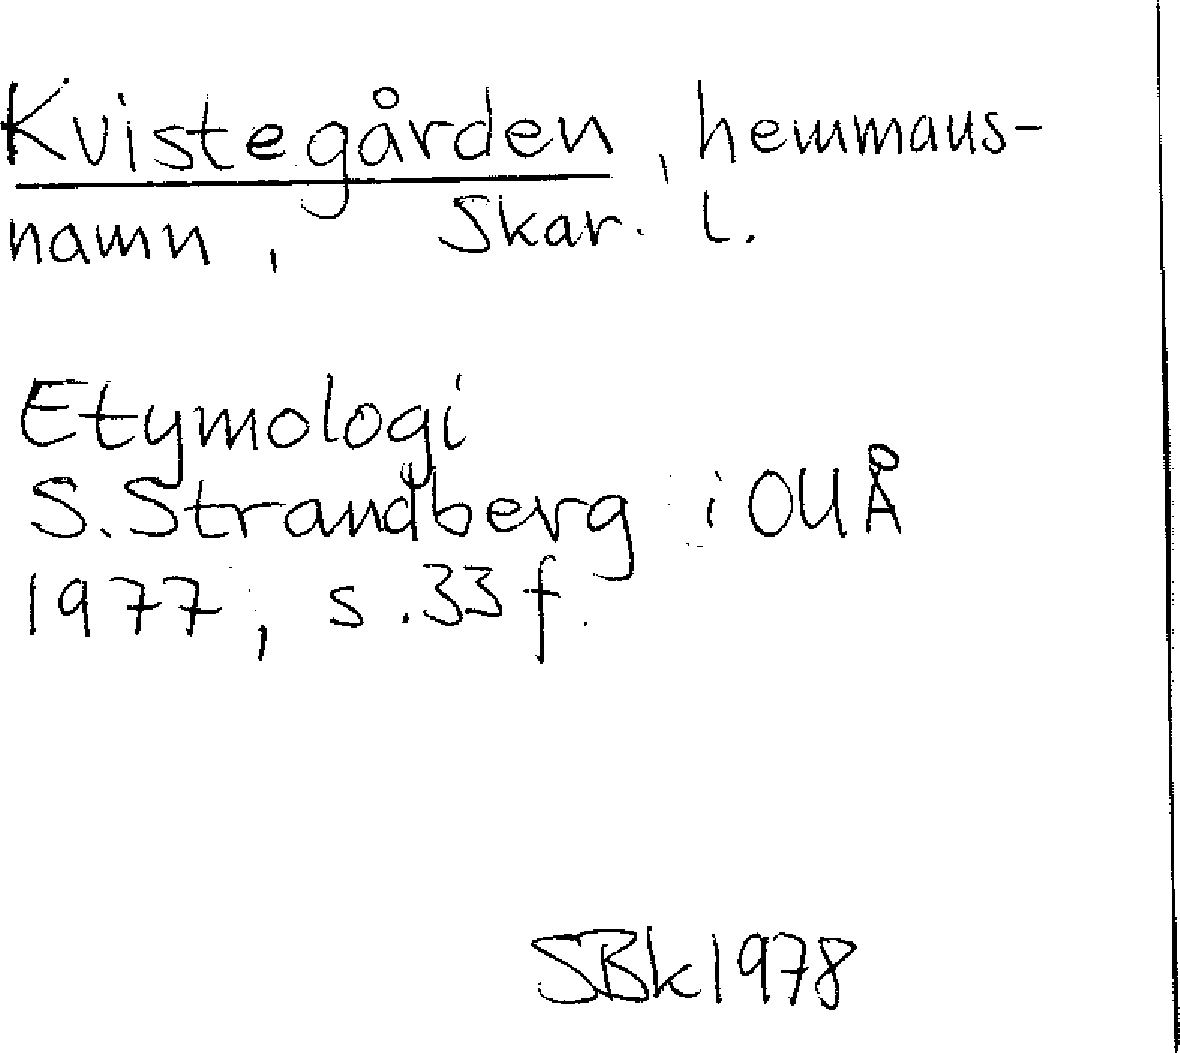 Kvistegården, hemmans-
namn, Skar. l.
Etymologi
S. Strandberg i OUÅ
1977, s. 33 f.
SBk 1978